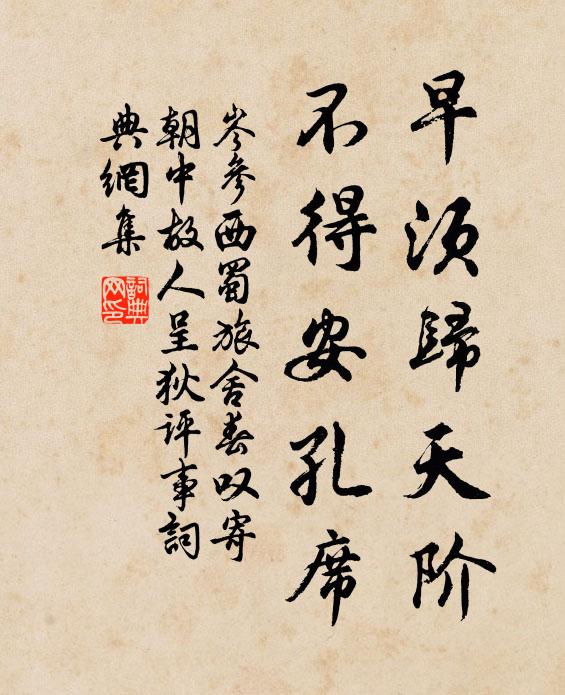 早须歸天阶
不得安孔席
岑參西蜀旅舍春叹寄
朝中故人呈狄评事詞
典網集
詞典
网印